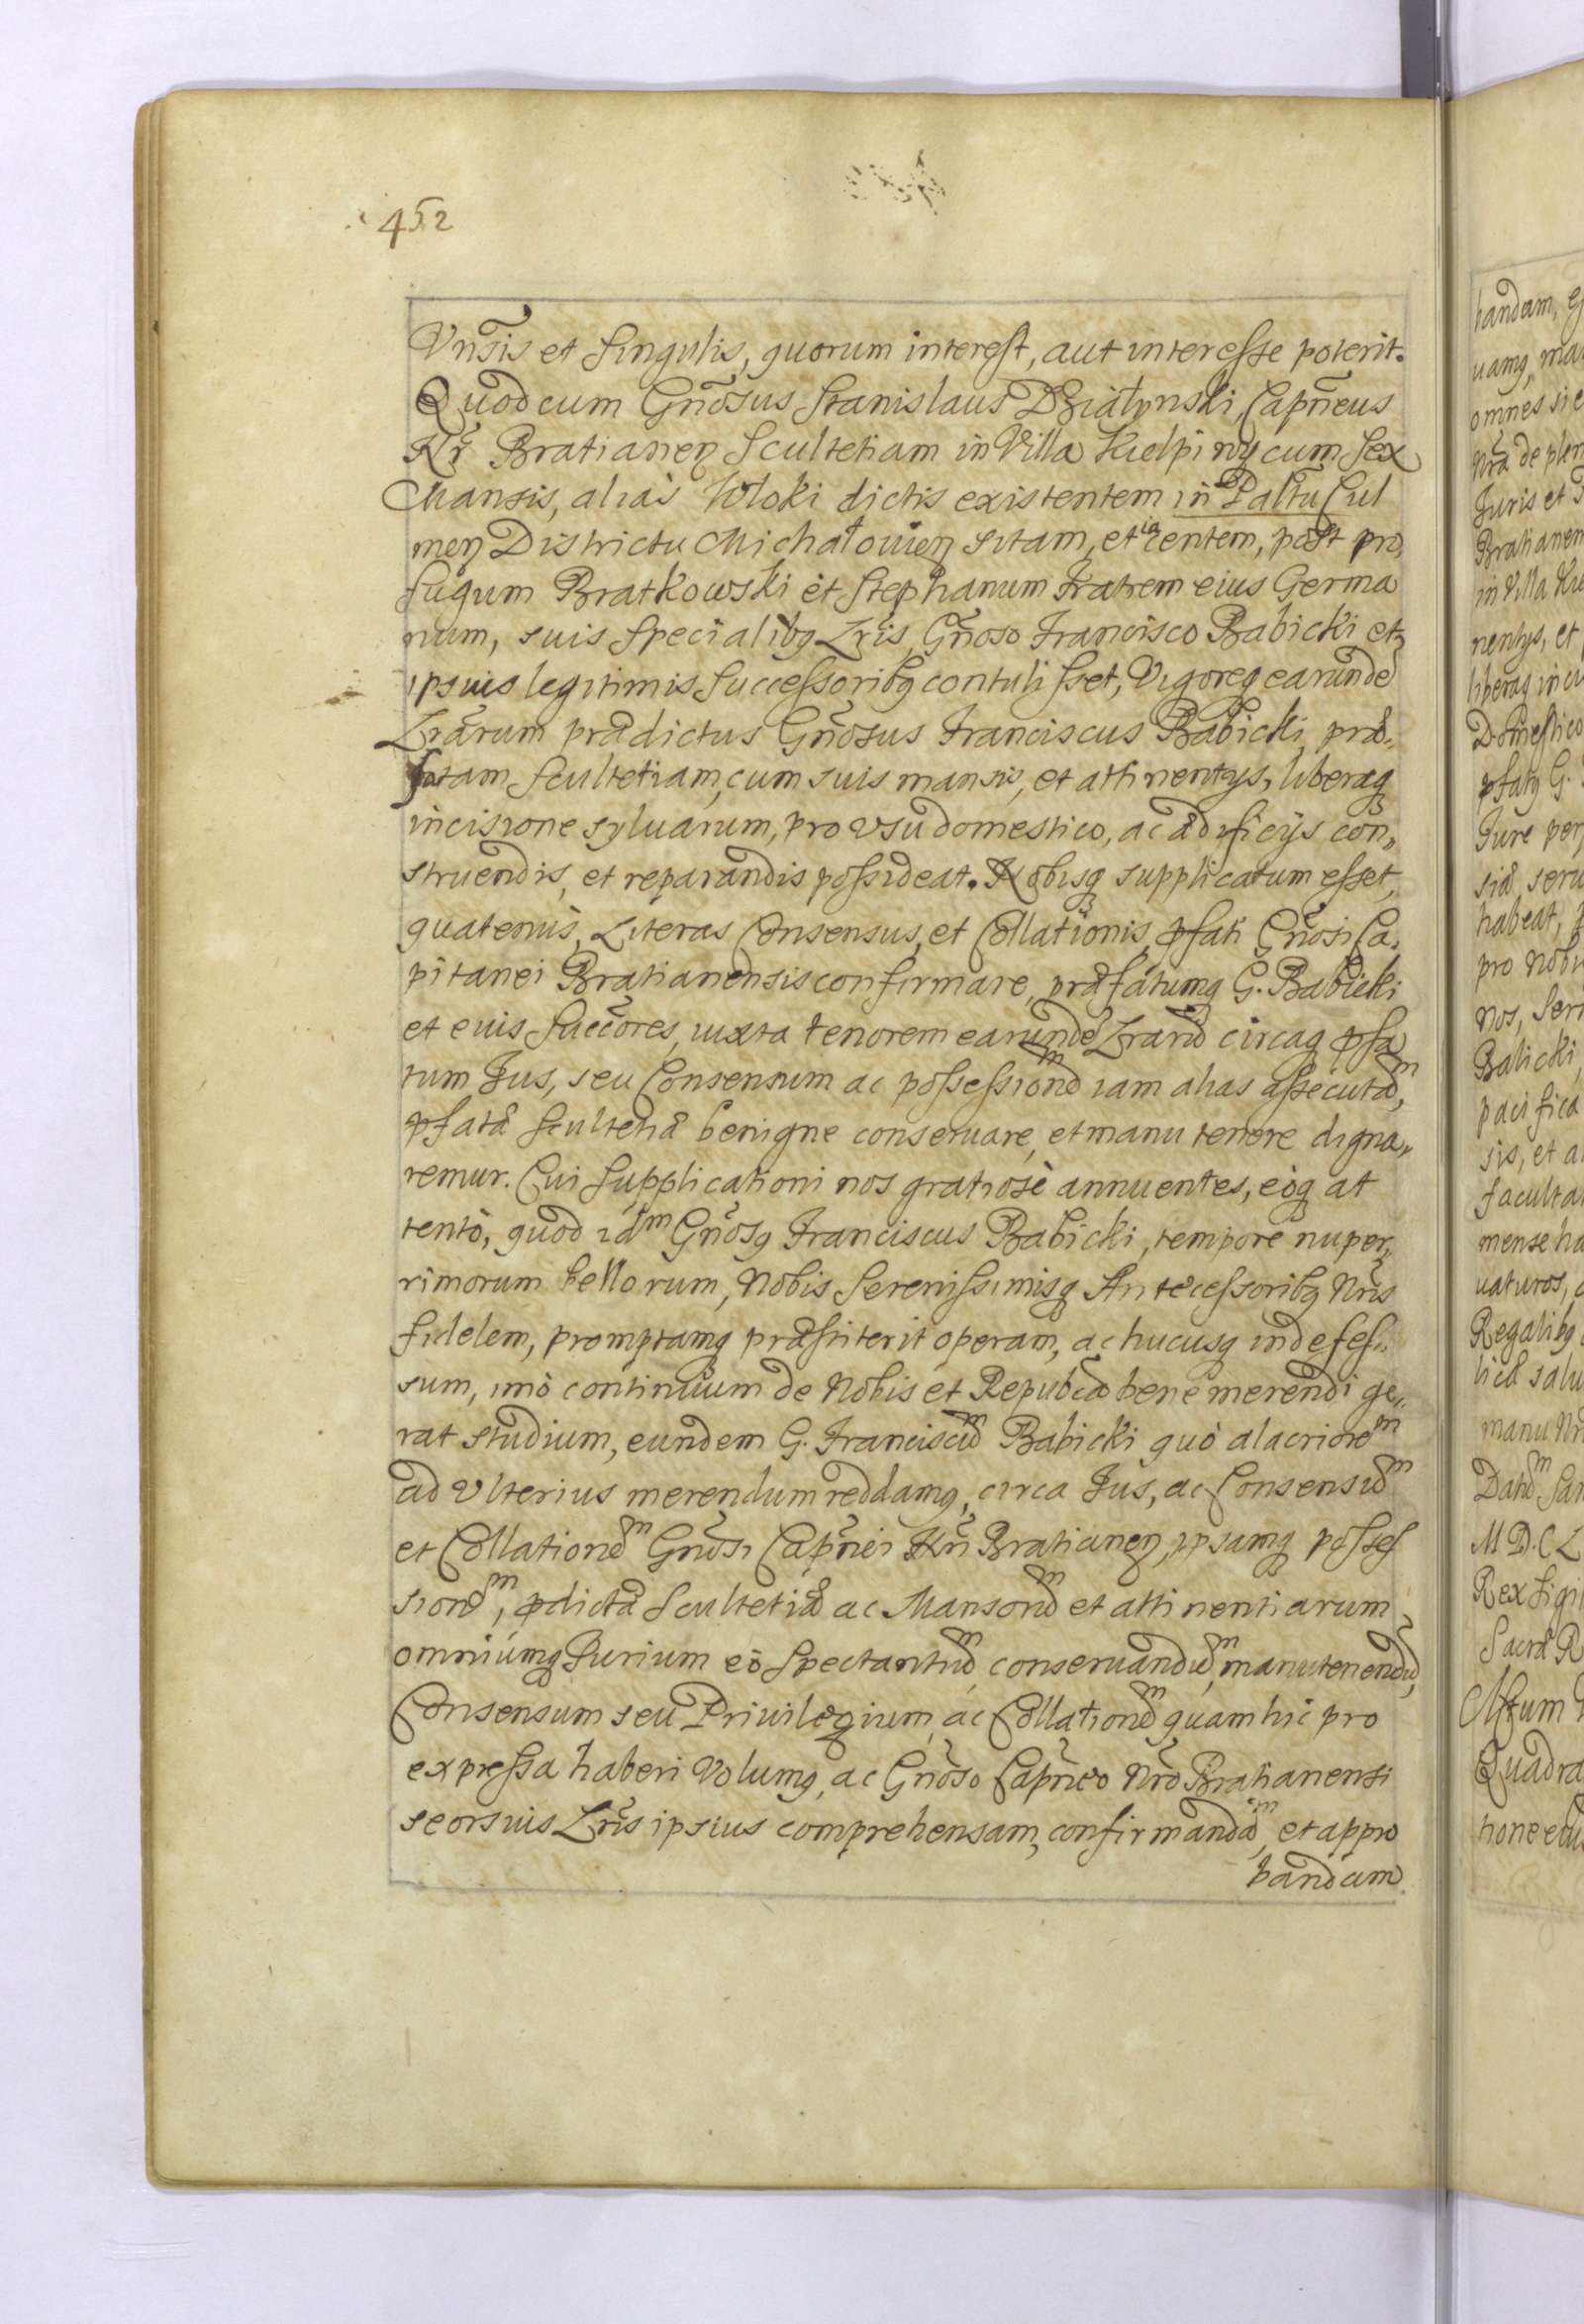 452
Vns̃is et Singulis, quorum interest, aut interesse poterit.
Quod cum Gnõsus Stanislaus Dzialynski, Capñeus
Nr̃ Bratianen̄ Scultetiam in Villa Kielpiny cum Sex
Mansis, aliàs Wloki dictis existentem in Paltũ Cul
men̄ Districtu Michałouien̄ sitam, et iacentem, post pro,
fugum Bratkowski et Stephanum Fratrem eius Germa
num, suis Specialibq Lrĩs, Gnõso Francisco Babicki et
ipsius legitimis Successoribq contulisset, Vigoreq earundẽ
Lrãrum prædictus Gnõsus Franciscus Babicki, præ„
fatam Scultetiam, cum suis mansis, et attinentijs, liberaq
incisione syluarum, pro vsu domestico, ac ædificijs con„
struendis, et reparandis possideat. Nobisq supplicatum esset,
quatenùs, Literas Consensus, et Collationis, pfati Gnõsi Ca„
pitanei Bratianensis confirmare, præfatumq G. Babicki
et eius Succõres, iuxta tenorem earundẽ Lrarũ circaq pfa
tum Jus, seu Consensum ac possessionem iam alias assecutam,
pfatæ Scultetiæ benigne conseruare, et manu tenere digna„
remur. Cui Supplicationi nos gratiosè annuentes, eòq at
tentò, quod idm Gnõsq Franciscus Babicki, tempore nuper„
rimorum bellorum, Nobis Serenissimisq Antecessoribq Nrĩs
fidelem, promptamq præstiterit operam, ac hucusq indefes„
sum, imò continuum de Nobis et Republcã bene merendi ge„
rat studium, eundem G. Franciscum Babicki quò alacriorem
ad Vlterius merendum reddamq, circa Jus, ac Consensum
et Collationem Gnõsi Capñei Nrĩ Bratianen̄, ipsamq posses
sionem, pdictæ Scultetiæ ac Mansorum et attinentiarum
omniumq Jurium eò Spectantium, conseruandum, manutenendum,
Consensum seu Priuilegium, ac Collationem quam hic pro
expressa haberi Volumq, ac Gnõso Capñeo Nrõ Bratianensi
seorsiuis Lrĩs ipsius comprehensam, confirmandam, et appro
bandam